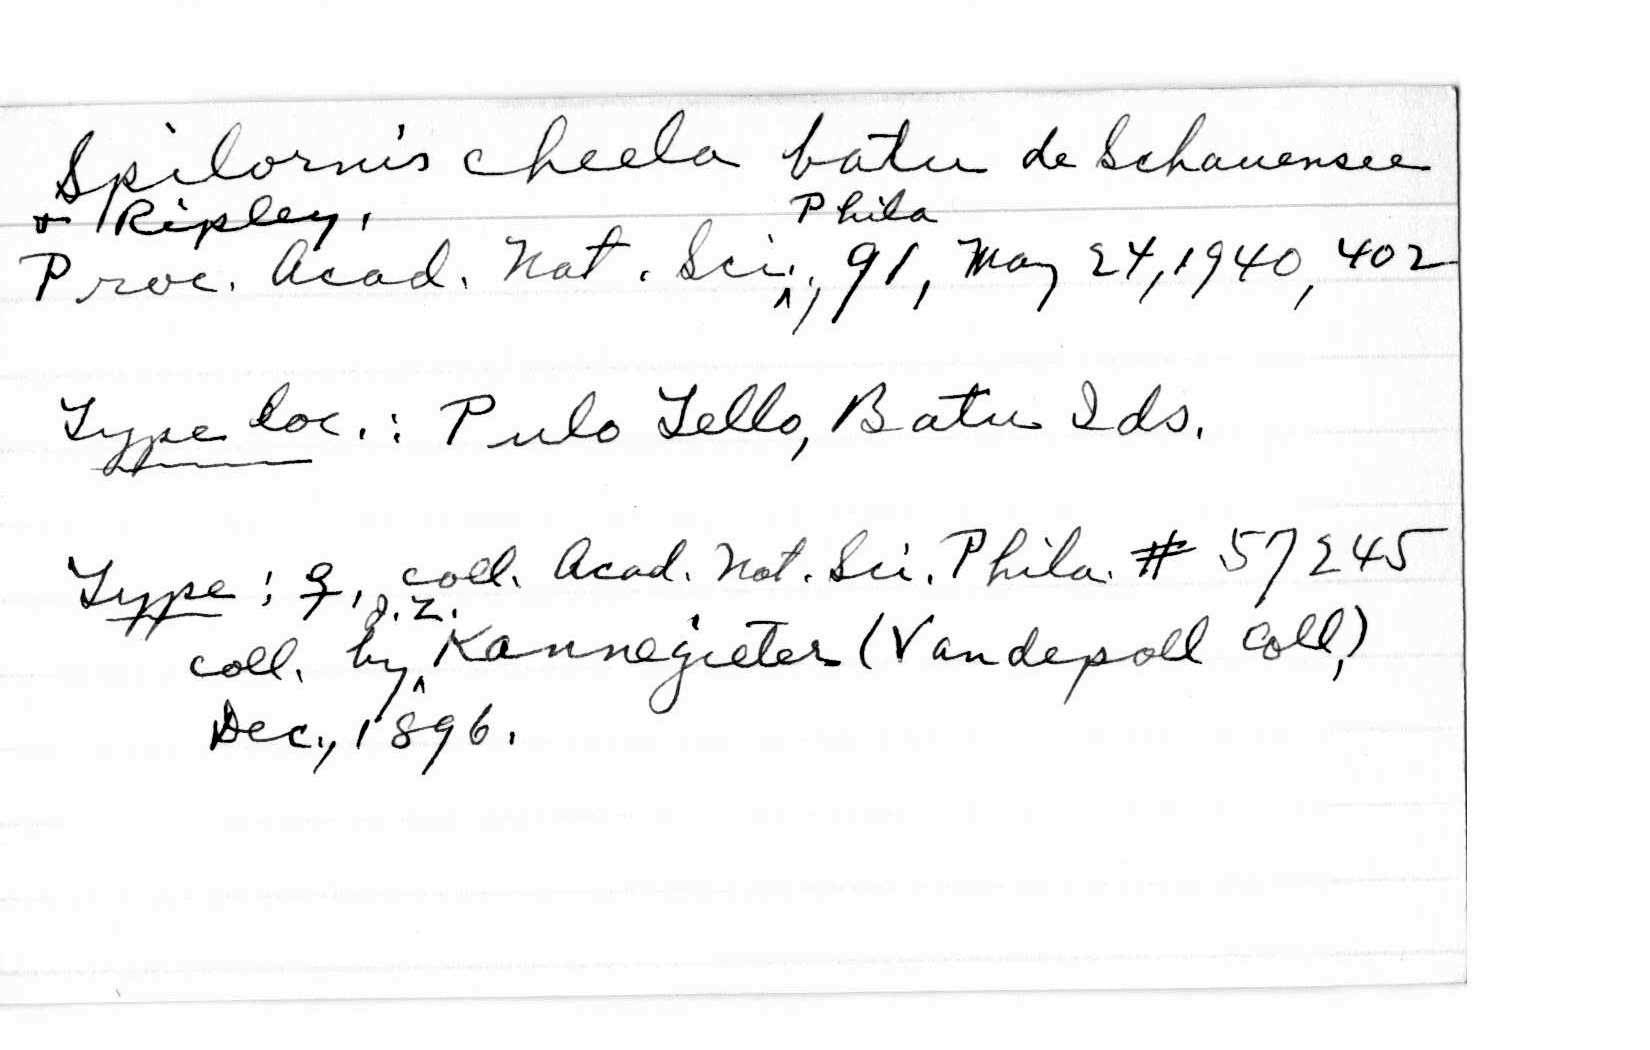 Spilornis cheela batu de Schauensee
& Ripley,
Proc. Acad. Nat. Sci. Phila., 91, May 24, 1940, 402
Type loc.: Pulo Tello, Batu Ids.
Type: ♀, coll. Acad. Nat. Sci. Phila. # 57245
coll. by J.Z. Kannegieter (Vandepoll Coll.)
Dec., 1896.